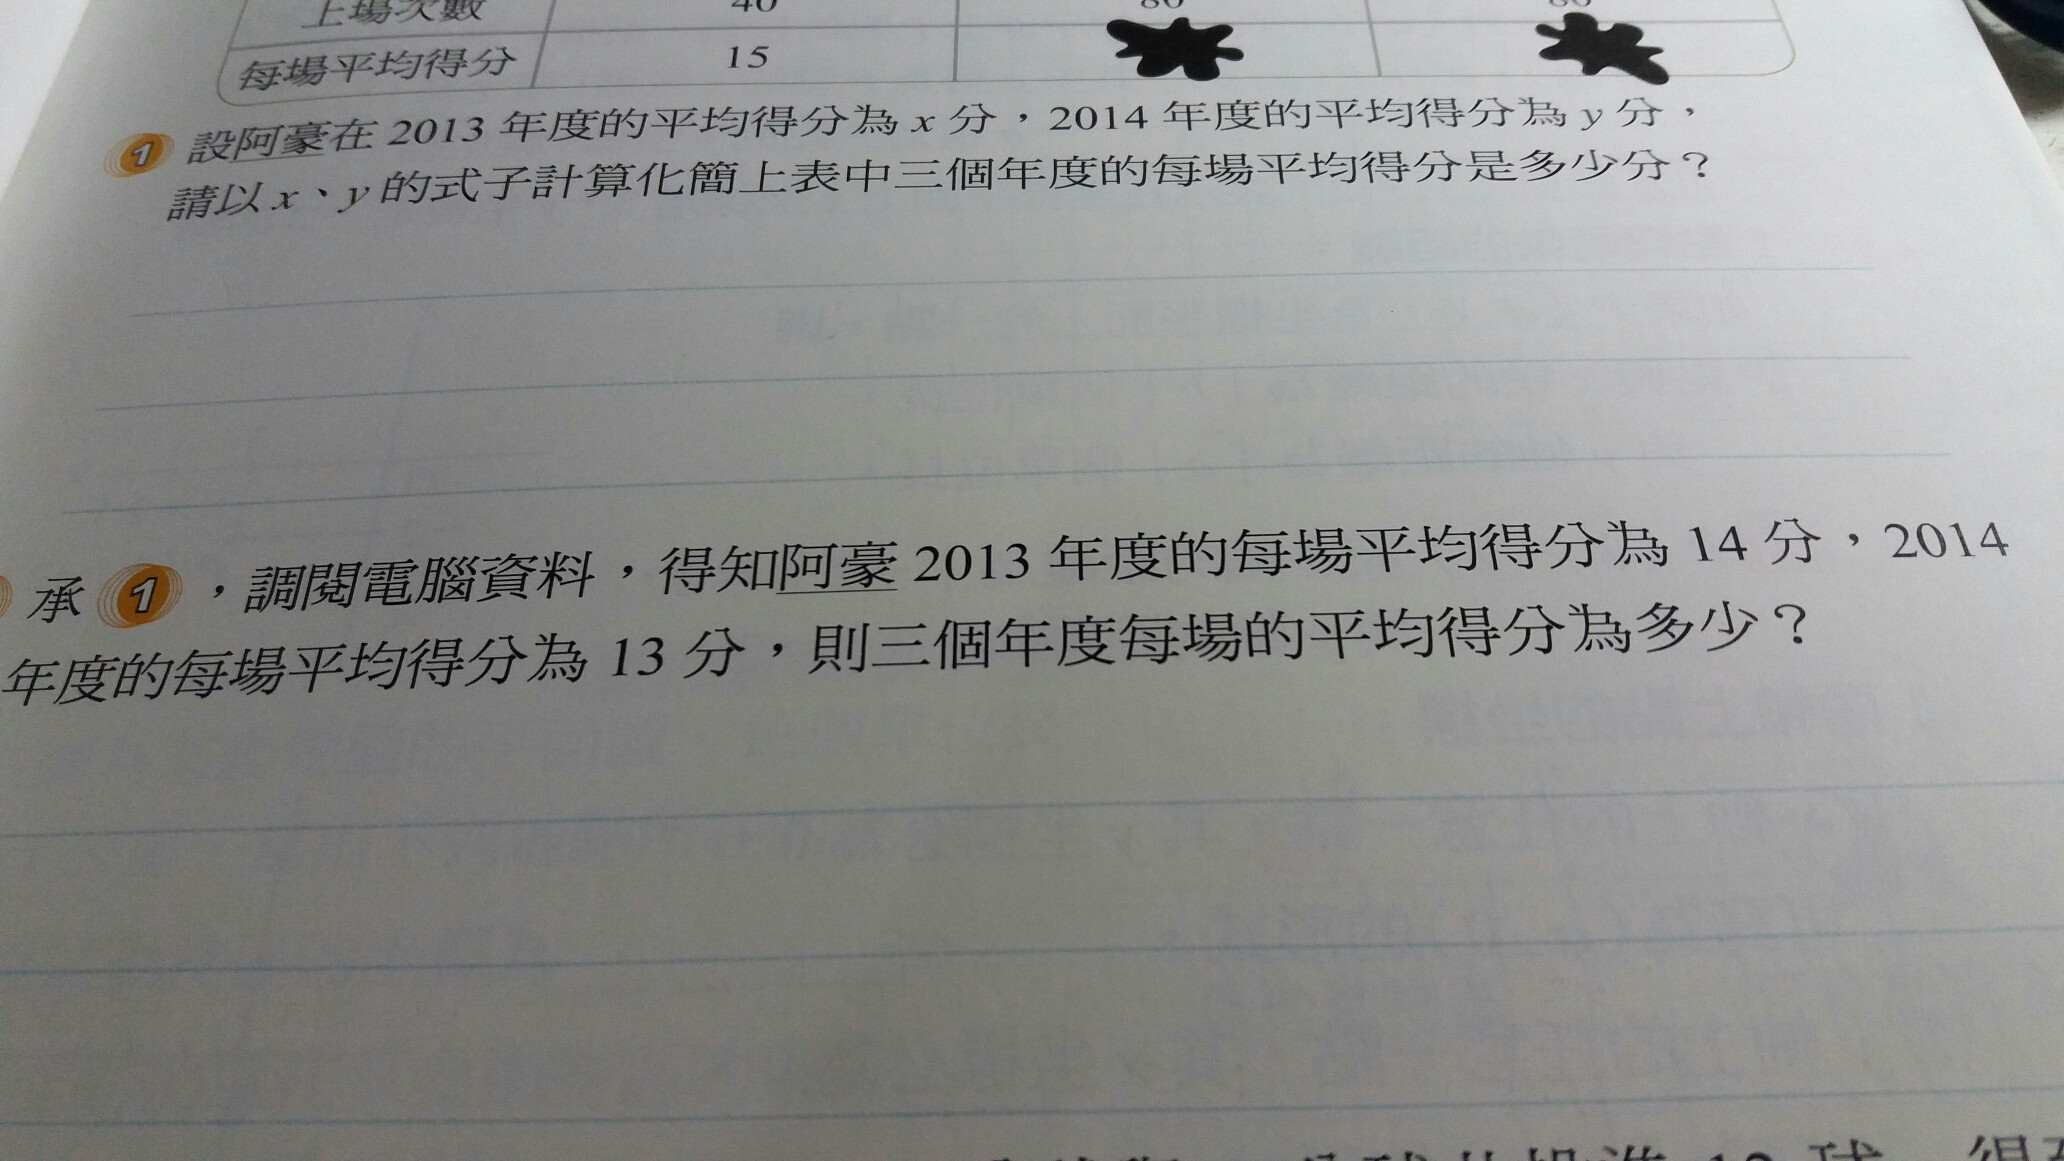 上場次數 40 80 80
每場平均得分 15
1 設阿豪在 2013 年度的平均得分為 x 分，2014 年度的平均得分為 y 分，
請以 x、y 的式子計算化簡上表中三個年度的每場平均得分是多少分？
承 1 ，調閱電腦資料，得知阿豪 2013 年度的每場平均得分為 14 分，2014
年度的每場平均得分為 13 分，則三個年度每場的平均得分為多少？